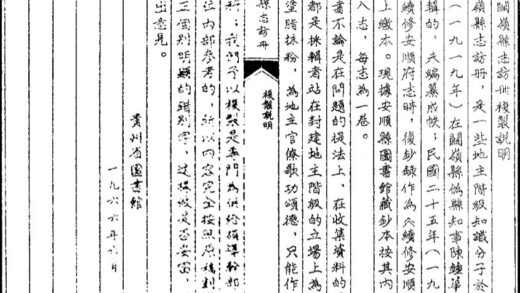 關嶺縣志訪冊複製説明
關嶺縣志訪冊,是一些地主階級知識分子於
(一九一九年)在關嶺縣偽縣知事陳鐘華
輯的,未編纂成帙;民國二十五年(一九
續修安順府志時,復鈔錄作為《續修安順
上繳本。現據安順縣圖書館藏鈔本按其內
入志,每志為一卷。
書不論是在問題的提法上,在收集資料的
都是採輯者站在封建地主階級的立場上為
塗脂抹粉,為地主官僚歌功頌德,只能作
縣志訪冊 複製説明
料;我們予以複製是專門為供給領導幹部
位內部參考的,所以內容完全按照原稿刻
正個別明顯的錯別字,這樣做是否妥當,
出意見。
貴州省圖書館
一九六六年 月